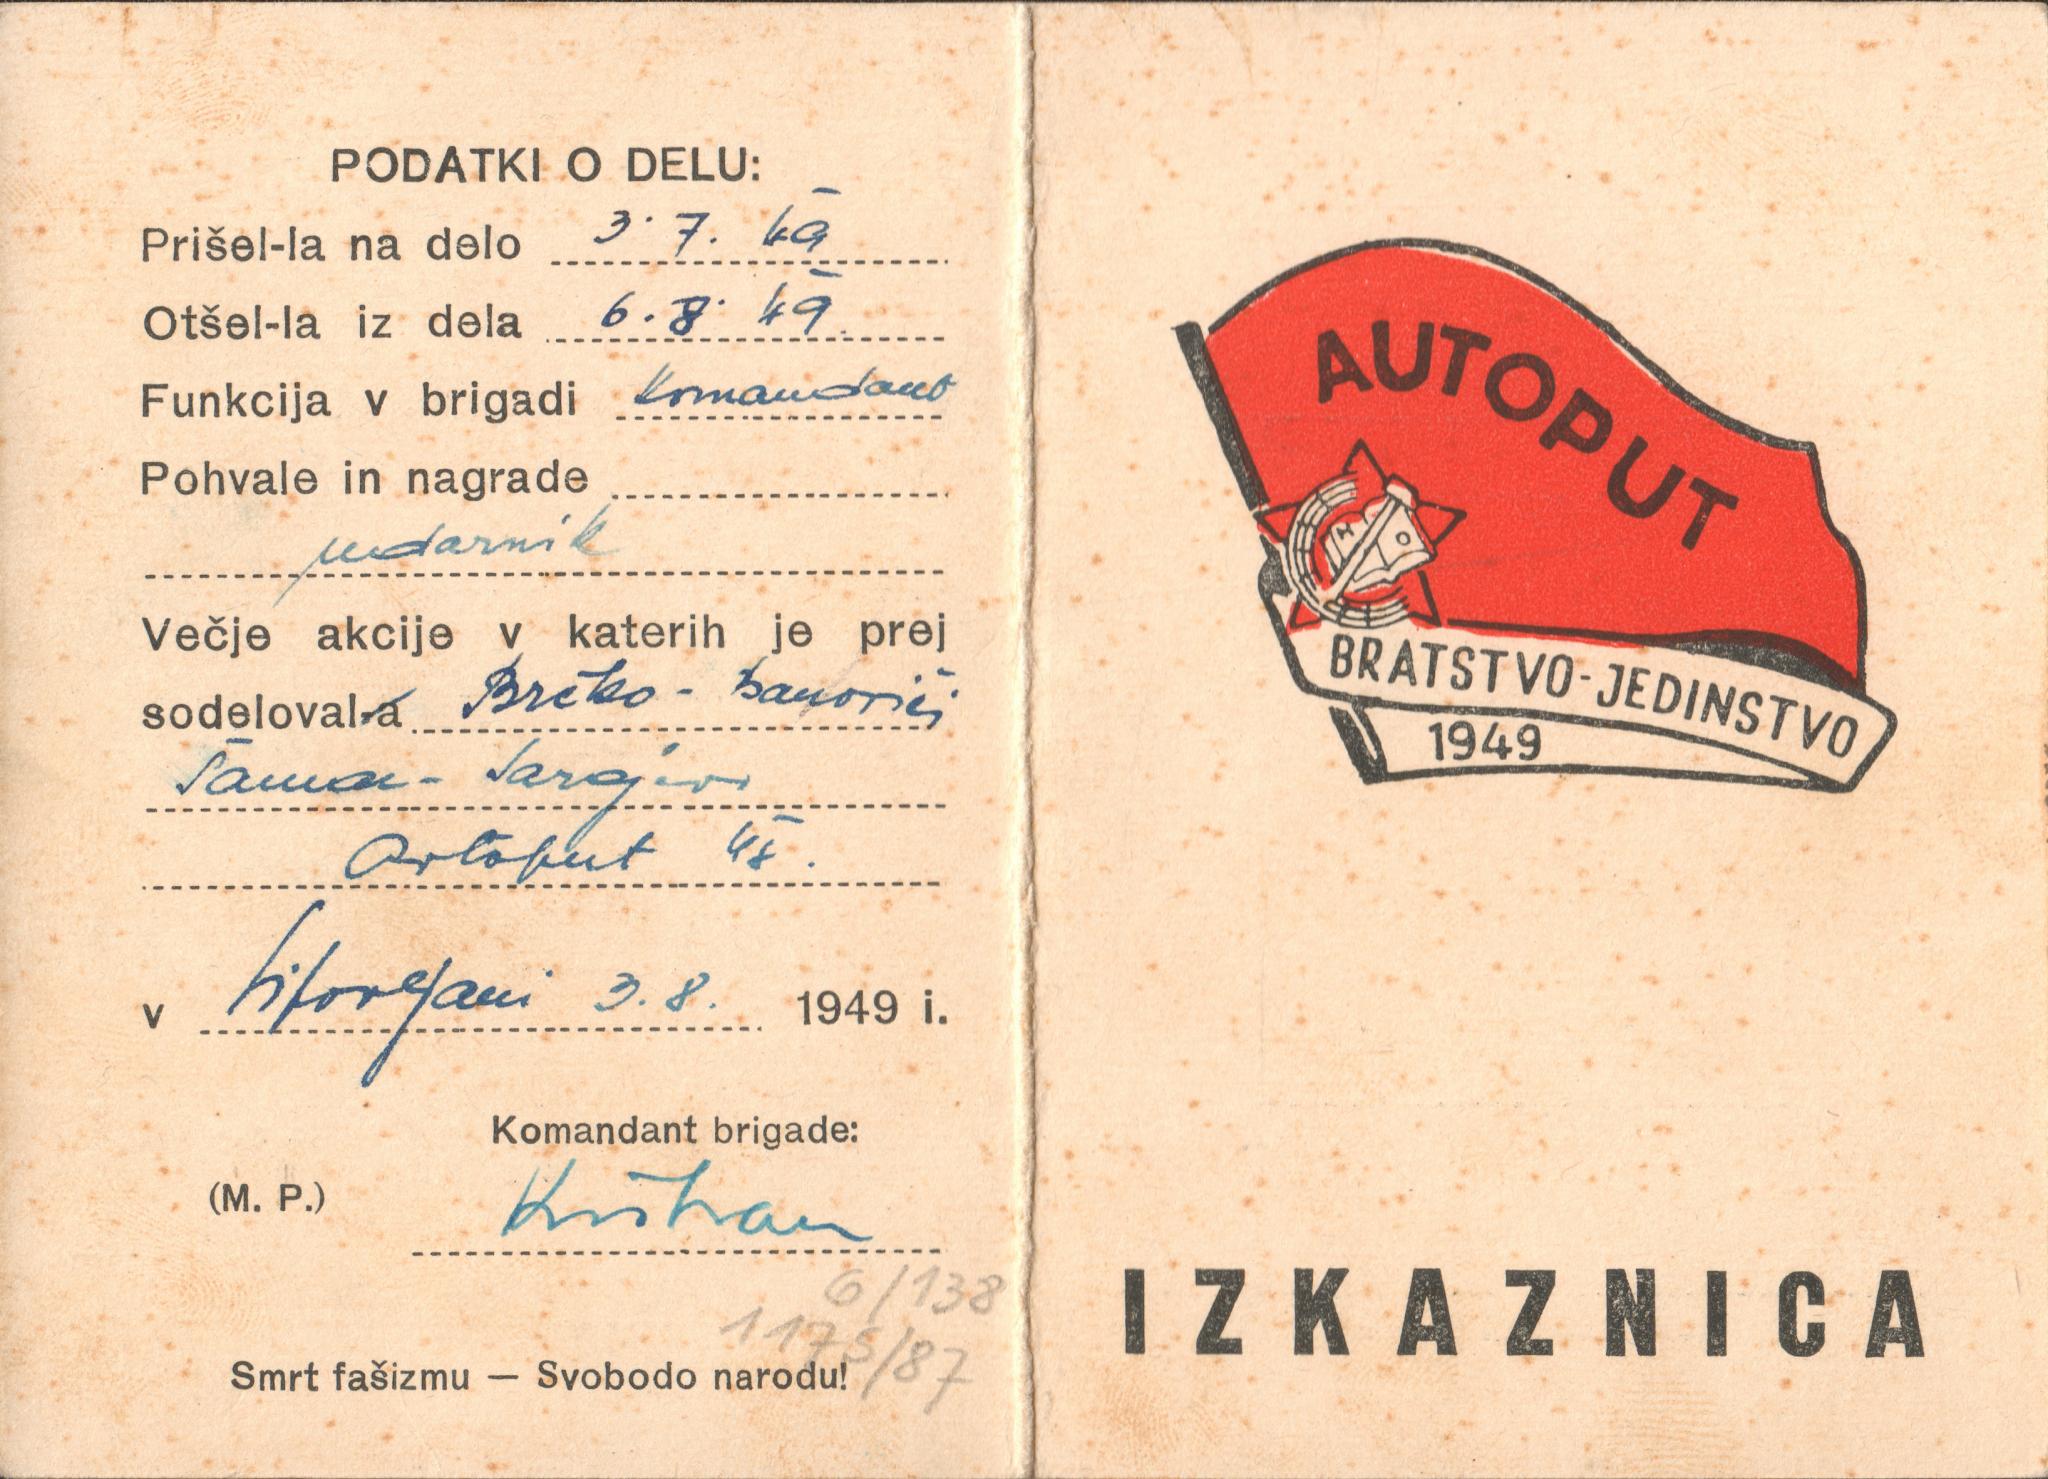 PODATKI O DELU:
Prišel-la na delo 3. 7. 49
Otšel-la iz dela 6. 8. 49.
Funkcija v brigadi Komandant
Pohvale in nagrade
udarnik
Večje akcije v katerih je prej
sodeloval-a Brčko - Banoviči
Šamac - Sarajevo
Avtoput 48.
v 3. 8. 1949 i.
Komandant brigade:
(M. P.)
6/138
1175/87
Smrt fašizmu — Svobodo narodu!
AUTOPUT
BRATSTVO-JEDINSTVO
1949
IZKAZNICA